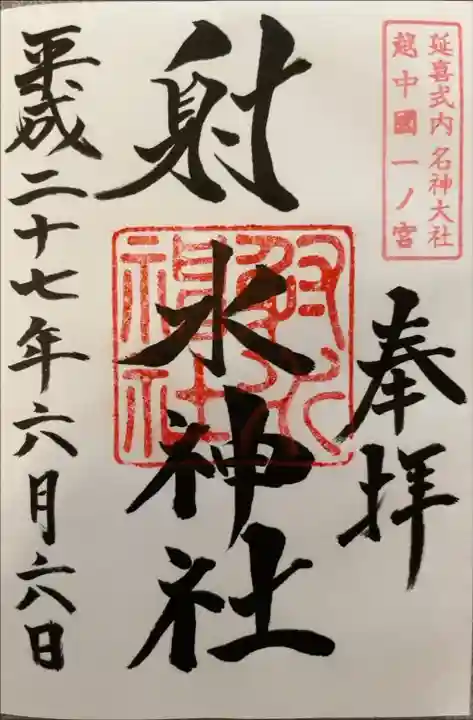 延喜式内名神大社
越中國一ノ宮
奉拝
射水神社
射水神社
平成二十七年六月六日